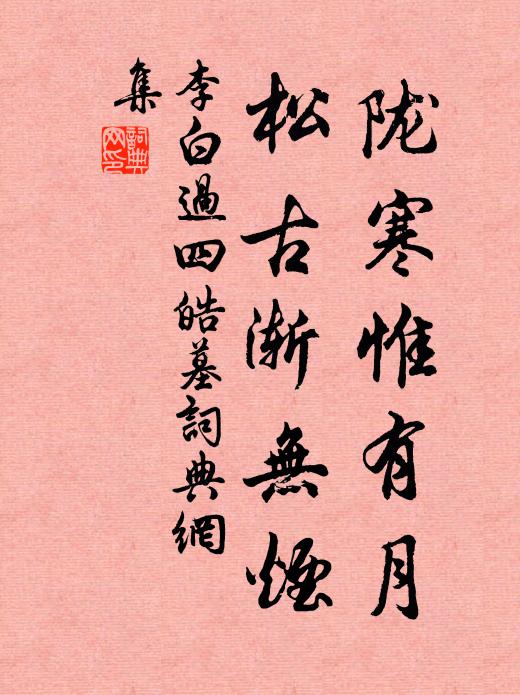 陇寒惟有月
松古渐無煙
李白過四皓墓詞典網
集
詞典
网印